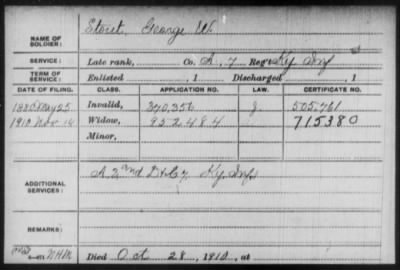 NAME OF SOLDIER: Stout, George W.
SERVICE: Late rank, Co. A, 7 Reg't Ky Inf
TERM OF SERVICE: Enlisted , 1 Discharged , 1
DATE OF FILING. CLASS. APPLICATION NO. LAW. CERTIFICATE NO.
1880 May 25 Invalid, 370,356 505,761
1910 Nov 14 Widow, 952484 715380
Minor,
ADDITIONAL SERVICES: A 2nd Ky. Inf
REMARKS:
Died Oct 28, 1910, at